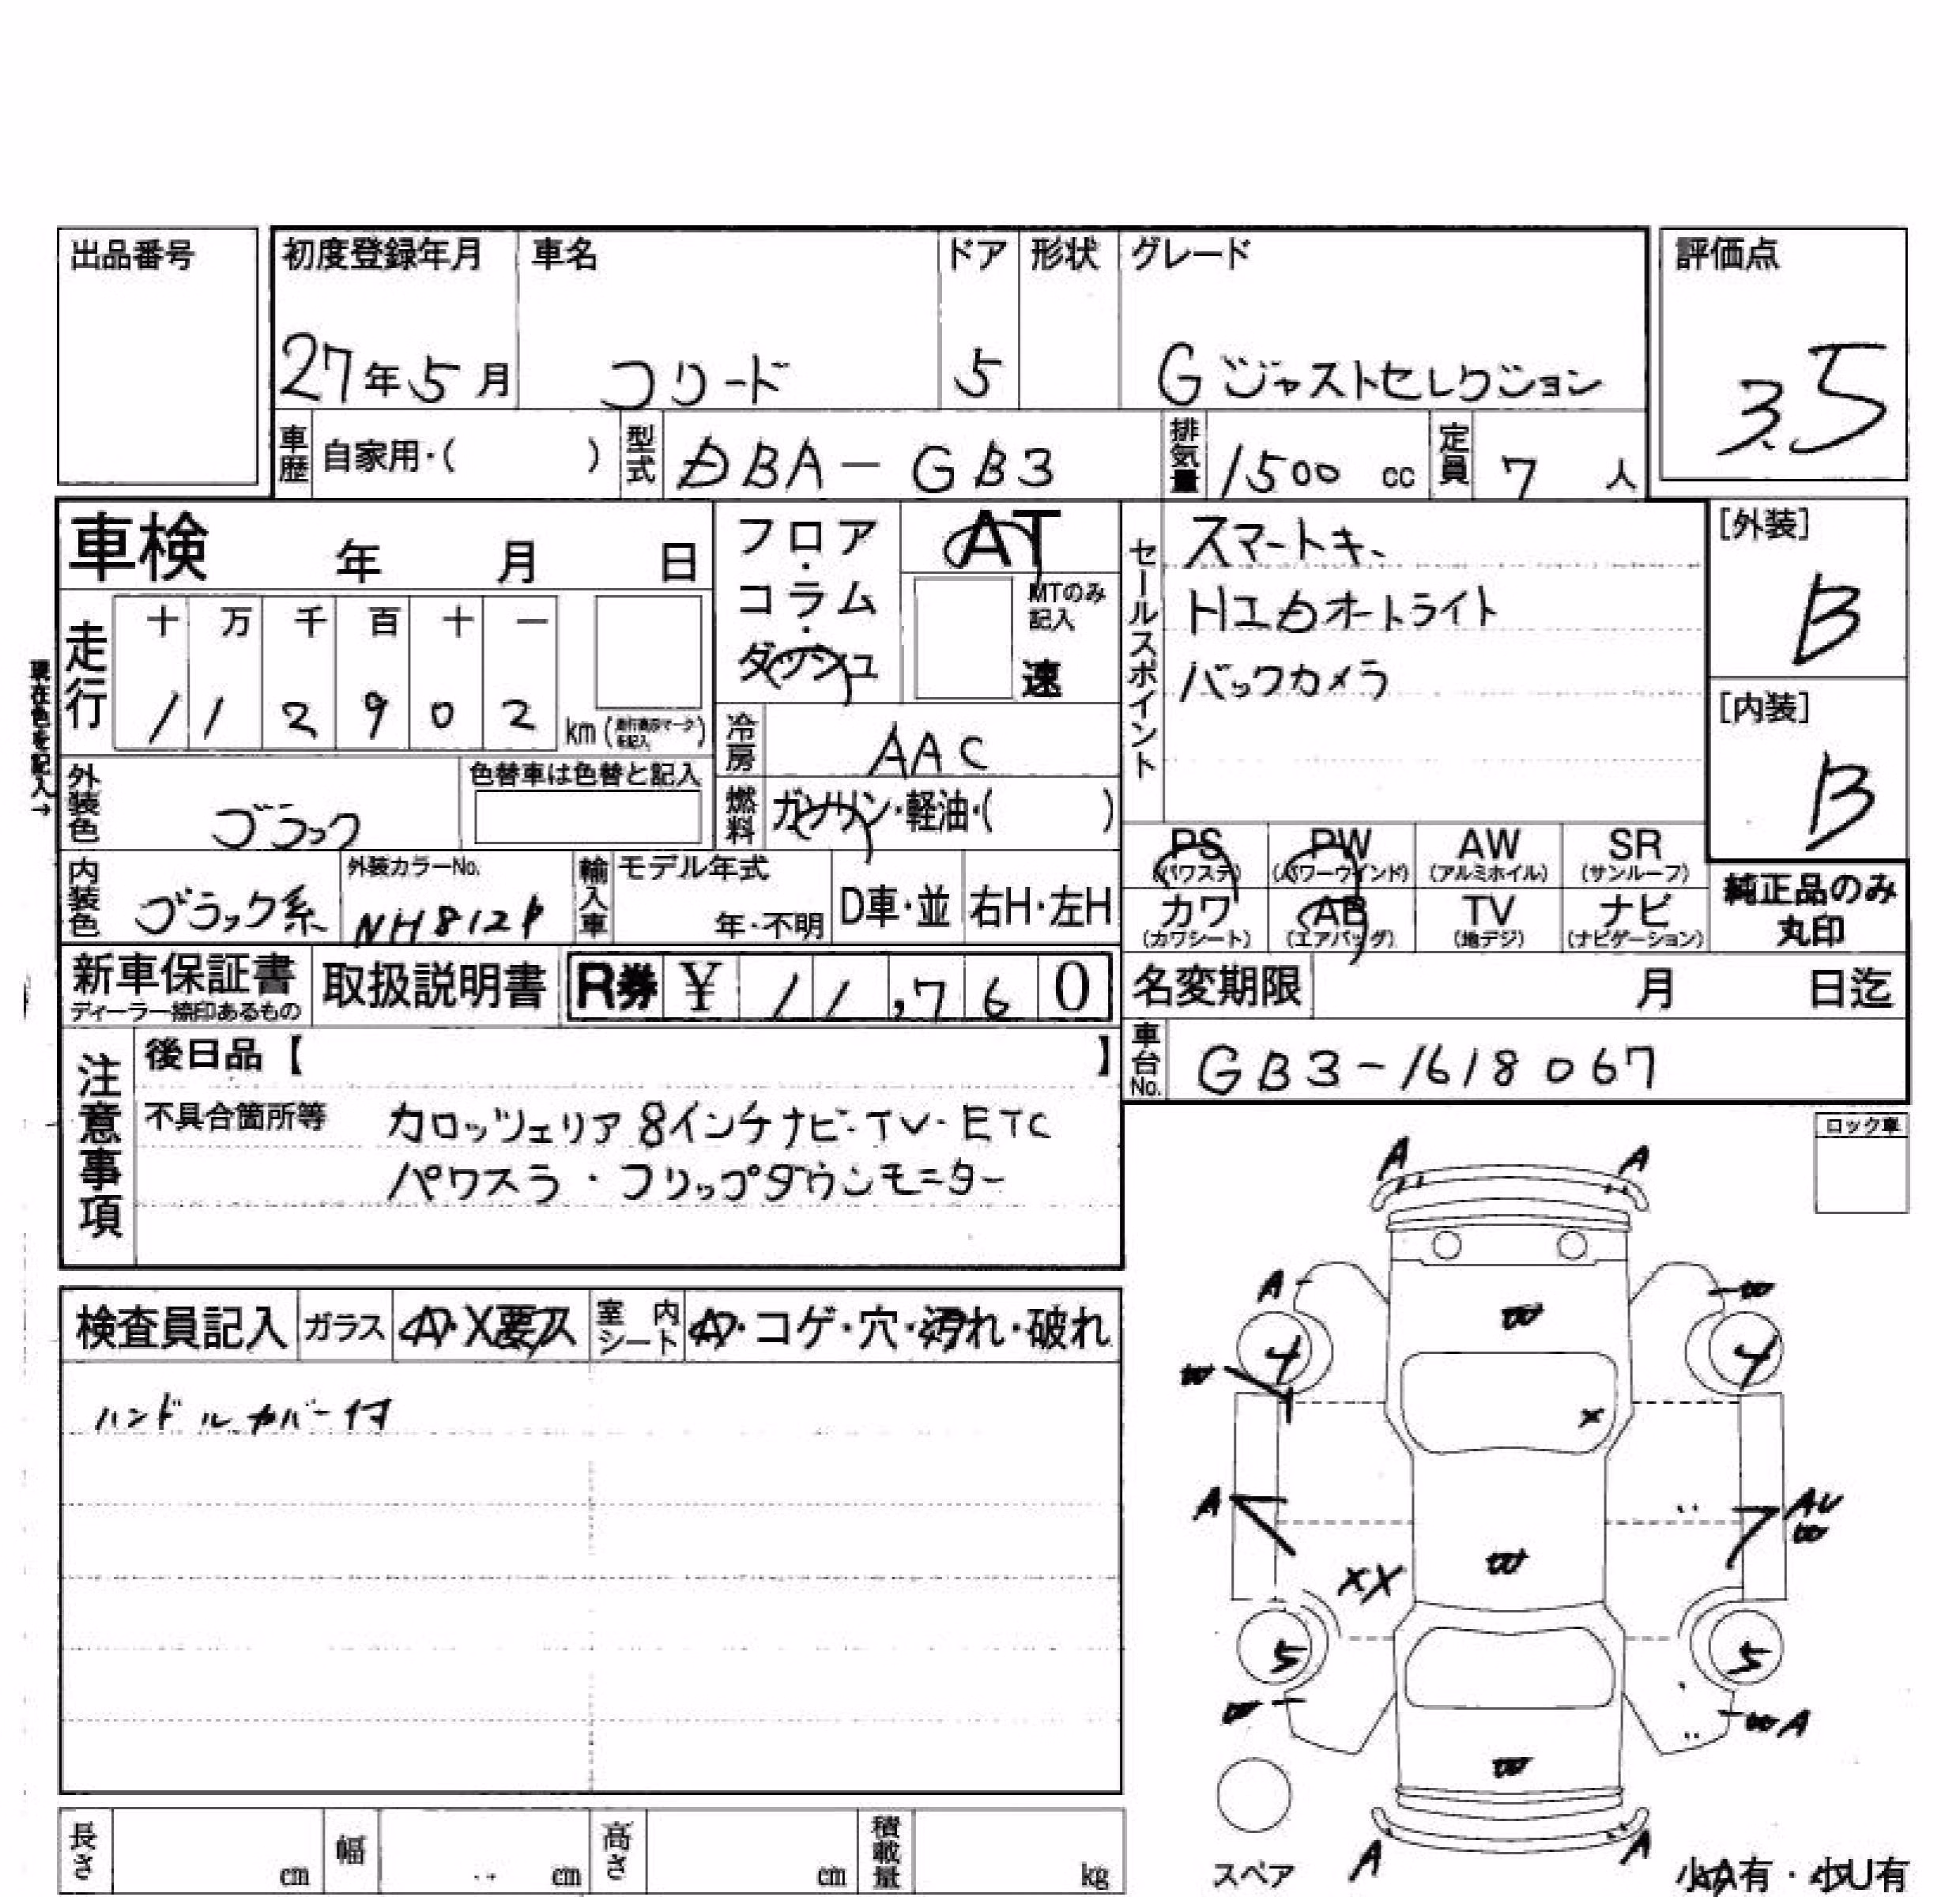 出品番号
初度登録年月 車名 ドア 形状 グレード 評価点
27年5月 フリード 5 Gジャストセレクション 3.5
車歴 自家用・( ) 型式 DBA-GB3 排気量 1500 cc 定員 7 人
車検 年 月 日
フロア・コラム・ダッシュ
AT
MTのみ記入
速
セールスポイント
スマートキー
HIDオートライト
バックカメラ
[外装]
B
[内装]
B
現在色を記入→
走行 十 万 千 百 十 一
1 1 2 9 0 2 km
冷房 AAC
外装色 ブラック 色替車は色替と記入
燃料 ガソリン・軽油・( )
内装色 ブラック系 外装カラーNo. NH812P 輸入車 モデル年式 年・不明 D車・並 右H・左H
PS (パワステ) PW (パワーウインド) AW (アルミホイル) SR (サンルーフ)
カワ (カワシート) AB (エアバッグ) TV (地デジ) ナビ (ナビゲーション)
純正品のみ
丸印
新車保証書 ディーラー捺印あるもの 取扱説明書 R券 ¥ 11,760
名変期限 月 日迄
車台No. GB3-1618067
注意事項
後日品【 】
不具合箇所等 カロッツェリア8インチナビ・TV・ETC
パワスラ・フリップダウンモニター
ロック車
検査員記入 ガラス A・X要ス 室内シート A・コゲ・穴・汚れ・破れ
ハンドルカバー付
A A
A W
W
4 4
W
X
A AU
W
W
XX
5 5
W WA
W
A A
スペア 小A有・小U有
長さ cm 幅 cm 高さ cm 積載量 kg